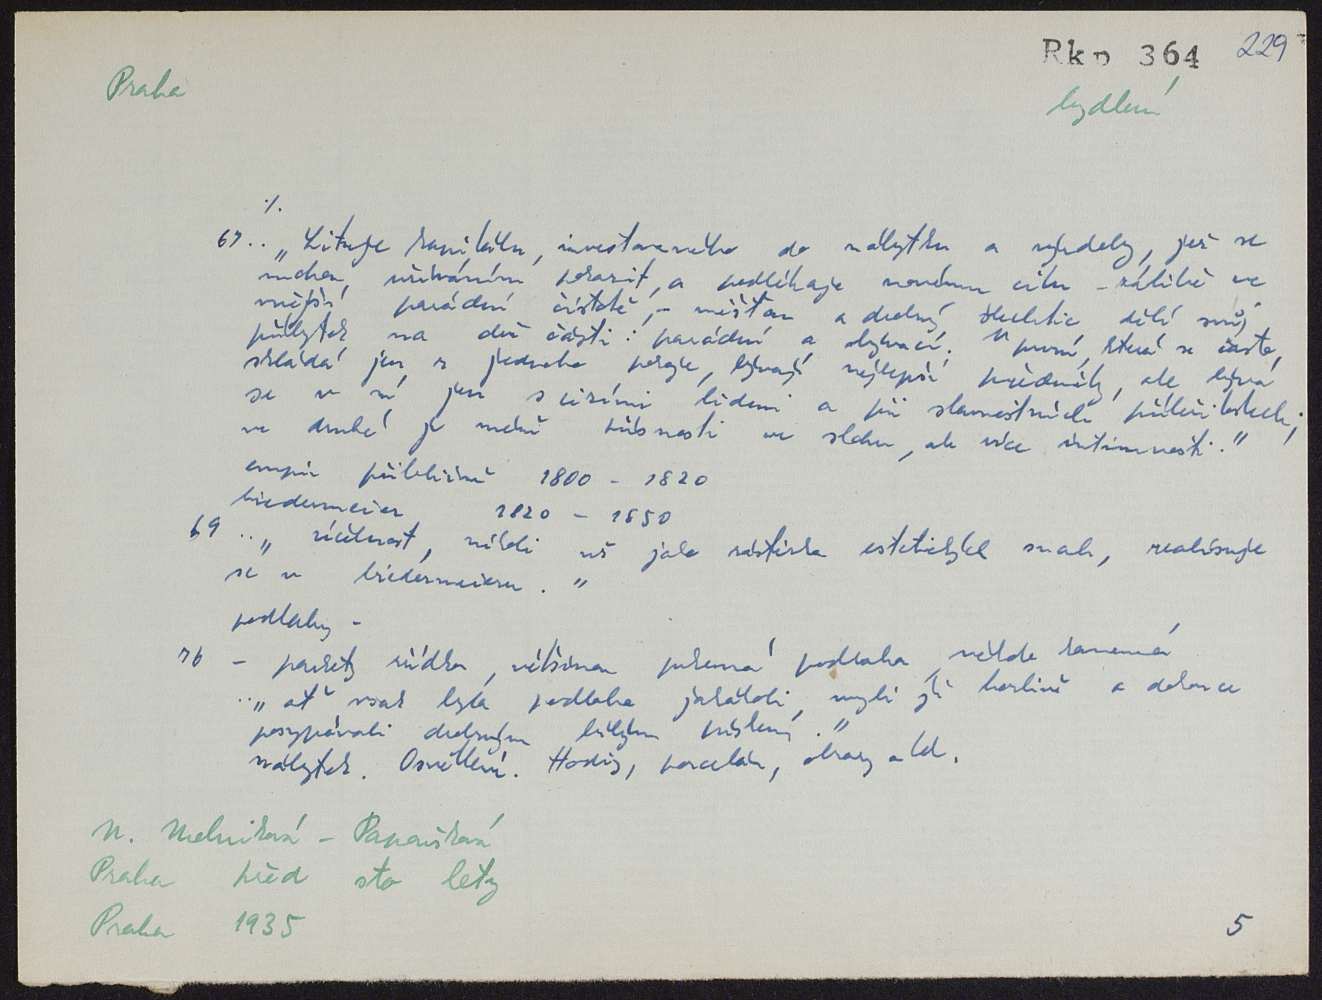 Rkp 364 229
Praha
bydlení
·/.
67 .. „Lituje kapitálu, investovaného do nábytku a výzdoby, jež se
mohou užíváním pokazit, a podléhaje novému citu – zálibě ve
vnější parádní čistotě, – měšťan a drobný šlechtic dělí svůj
příbytek na dvě části: parádní a obývací. První, která se často
skládá jen z jednoho pokoje, bývají nejlepší předměty, ale bývá
se v ní jen s cizími lidmi a při slavnostních příležitostech;
ve druhé je méně přísnosti ve slohu, ale více intimnosti."
empir přibližně 1800 – 1820
biedermeier 1820 – 1850
69 .. „ účelnost, nikoli už jako záštita estetických snah, realisuje
se v biedermeieru."
podlahy –
76 – parkety zřídka, většinou prkenná podlaha, někde kamenná
.. „ ať však byla podlaha jakákoli, myli ji horlivě a dokonce
posypávali drobným bílým pískem."
nábytek. Osvětlení. Hodiny, porcelán, obrazy atd.
N. Melniková – Papoušková
Praha před sto lety
Praha 1935
5